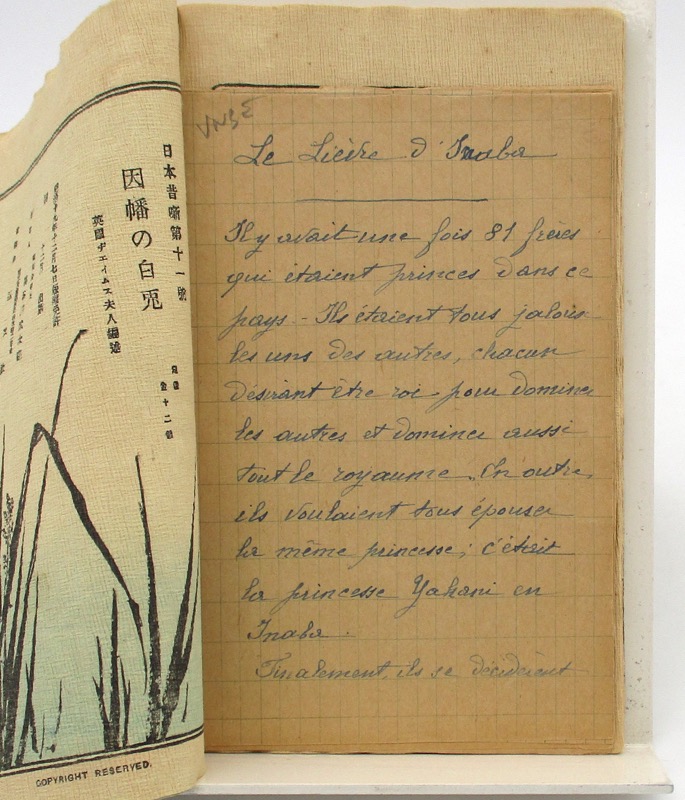 日本昔噺第十一號
因幡の白兎
英國ヂエイムス夫人編述
COPYRIGHT RESERVED.
Le Lièvre d'Inaba
Il y avait une fois 81 frères
qui étaient princes dans ce
pays - Ils étaient tous jaloux
les uns des autres, chacun
désirant être roi pour dominer
les autres et dominer aussi
tout le royaume. En outre,
ils voulaient tous épouser
la même princesse; c'était
la princesse Yakami en
Inaba.
Finalement, ils se décidèrent